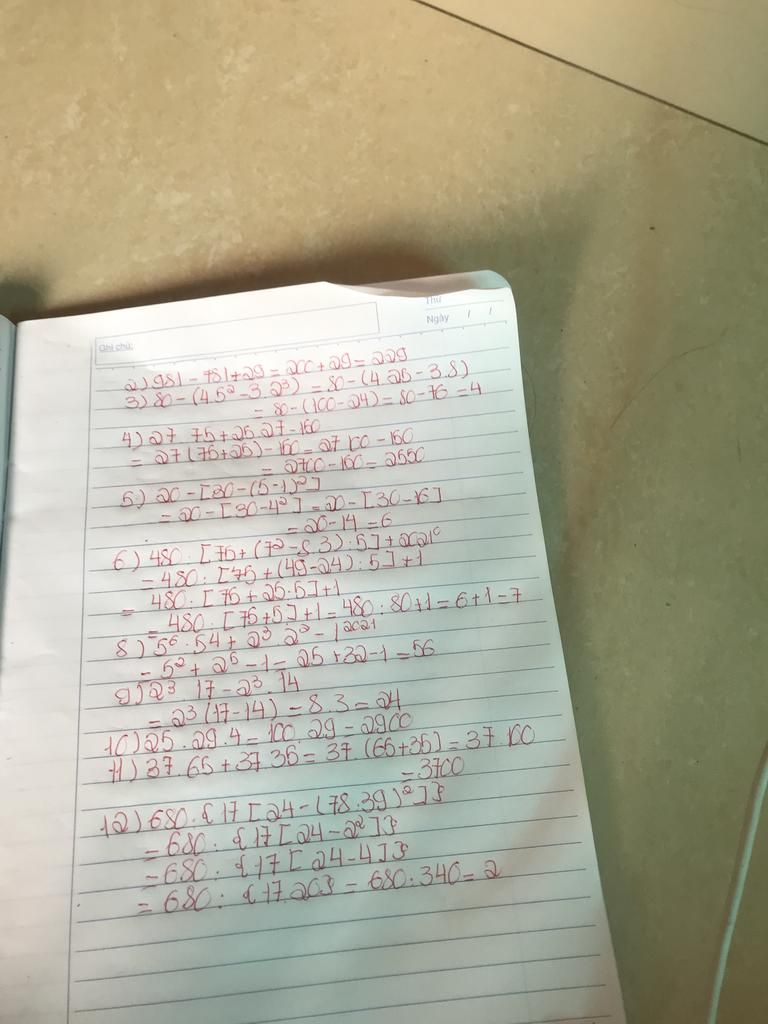 Thứ
Ghi chú:
Ngày / /
2) 981 - 781 + 29 = 200 + 29 = 229
3) 80 - (4.5² - 3.2³) = 80 - (4.25 - 3.8)
= 80 - (100 - 24) = 80 - 76 = 4
4) 27 75 + 25 27 - 150
= 27 (75 + 25) - 150 = 27 100 - 150
= 2700 - 150 = 2550
5) 20 - [30 - (5 - 1)²]
= 20 - [30 - 4²] = 20 - [30 - 16]
= 20 - 14 = 6
6) 480 : [75 + (7² - 8.3) : 5] + 2021⁰
= 480 : [75 + (49 - 24) : 5] + 1
= 480 : [75 + 25 : 5] + 1
= 480 : [75 + 5] + 1 = 480 : 80 + 1 = 6 + 1 = 7
8) 5⁶ : 54 + 2³ 2² - 1²⁰²¹
= 5² + 2⁵ - 1 = 25 + 32 - 1 = 56
9) 2³ 17 - 2³ . 14
= 2³ (17 - 14) = 8 . 3 = 24
10) 25 . 29 . 4 = 100 . 29 = 2900
11) 37 . 65 + 37 35 = 37 . (65 + 35) = 37 . 100
= 3700
12) 680 : {17 [24 - (78 : 39)²]}
= 680 : {17 [24 - 2²]}
= 680 : {17 [24 - 4]}
= 680 : {17 . 20} = 680 : 340 = 2